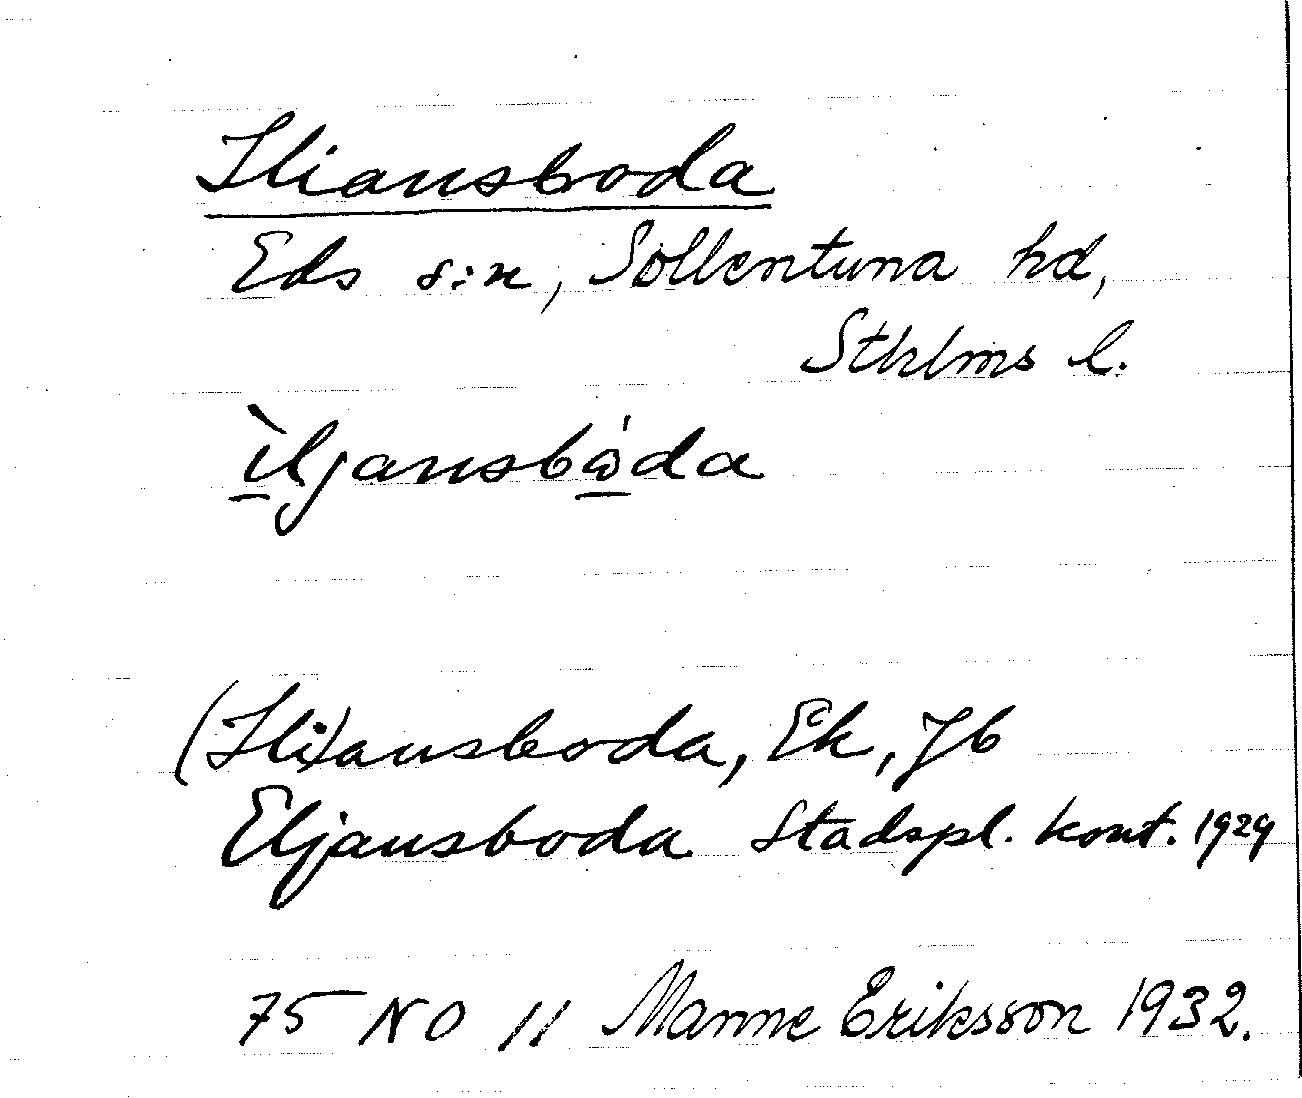 Iliansboda
Eds s:n, Sollentuna hd,
Sthlms l.
ìljansbω̇da
(Ili)ansboda, Ek, Jb
Eljansboda Stadspl. kont. 1929
75 NO 11 Manne Eriksson 1932.